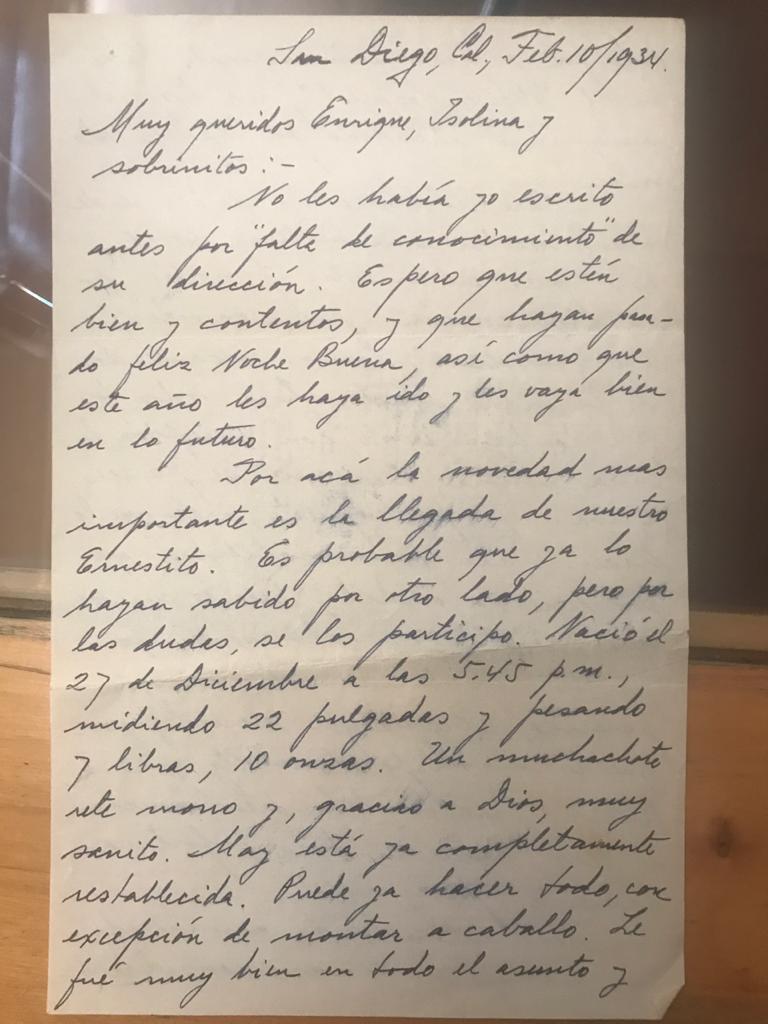 San Diego, Cal., Feb. 10/1934.
Muy queridos Enrique, Isolina y
sobrinitos:-
No les había yo escrito
antes por "falta de conocimiento" de
su dirección. Espero que estén
bien y contentos, y que hayan pasa-
do feliz Noche Buena, así como que
este año les haya ido y les vaya bien
en lo futuro.
Por acá la novedad mas
importante es la llegada de nuestro
Ernestito. Es probable que ya lo
hayan sabido por otro lado, pero por
las dudas, se los participo. Nació el
27 de Diciembre a las 5.45 p.m.,
midiendo 22 pulgadas y pesando
7 libras, 10 onzas. Un muchachote
rete mono y, gracias a Dios, muy
sanito. May está ya completamente
restablecida. Puede ya hacer todo, con
excepción de montar a caballo. Le
fué muy bien en todo el asunto y